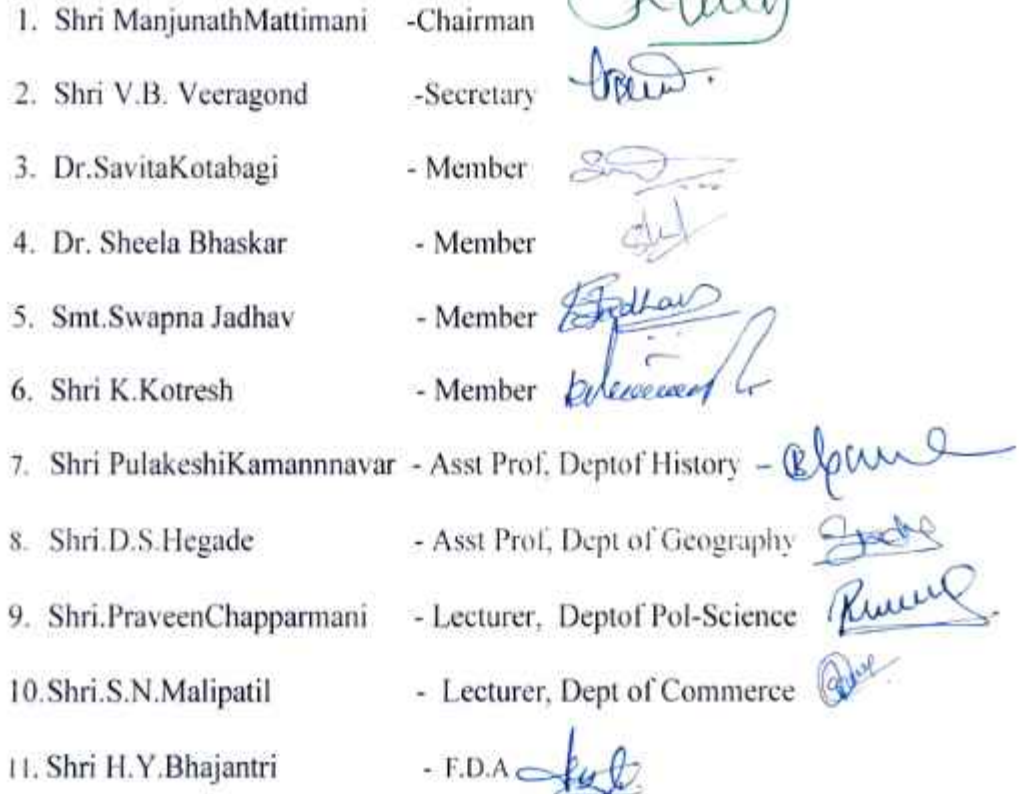 1. Shri ManjunathMattimani -Chairman
2. Shri V.B. Veeragond -Secretary
3. Dr.SavitaKotabagi - Member
4. Dr. Sheela Bhaskar - Member
5. Smt.Swapna Jadhav - Member
6. Shri K.Kotresh - Member
7. Shri PulakeshiKamannnavar - Asst Prof, Deptof History -
8. Shri.D.S.Hegade - Asst Prof, Dept of Geography
9. Shri.PraveenChapparmani - Lecturer, Deptof Pol-Science
10.Shri.S.N.Malipatil - Lecturer, Dept of Commerce
11. Shri H.Y.Bhajantri - F.D.A